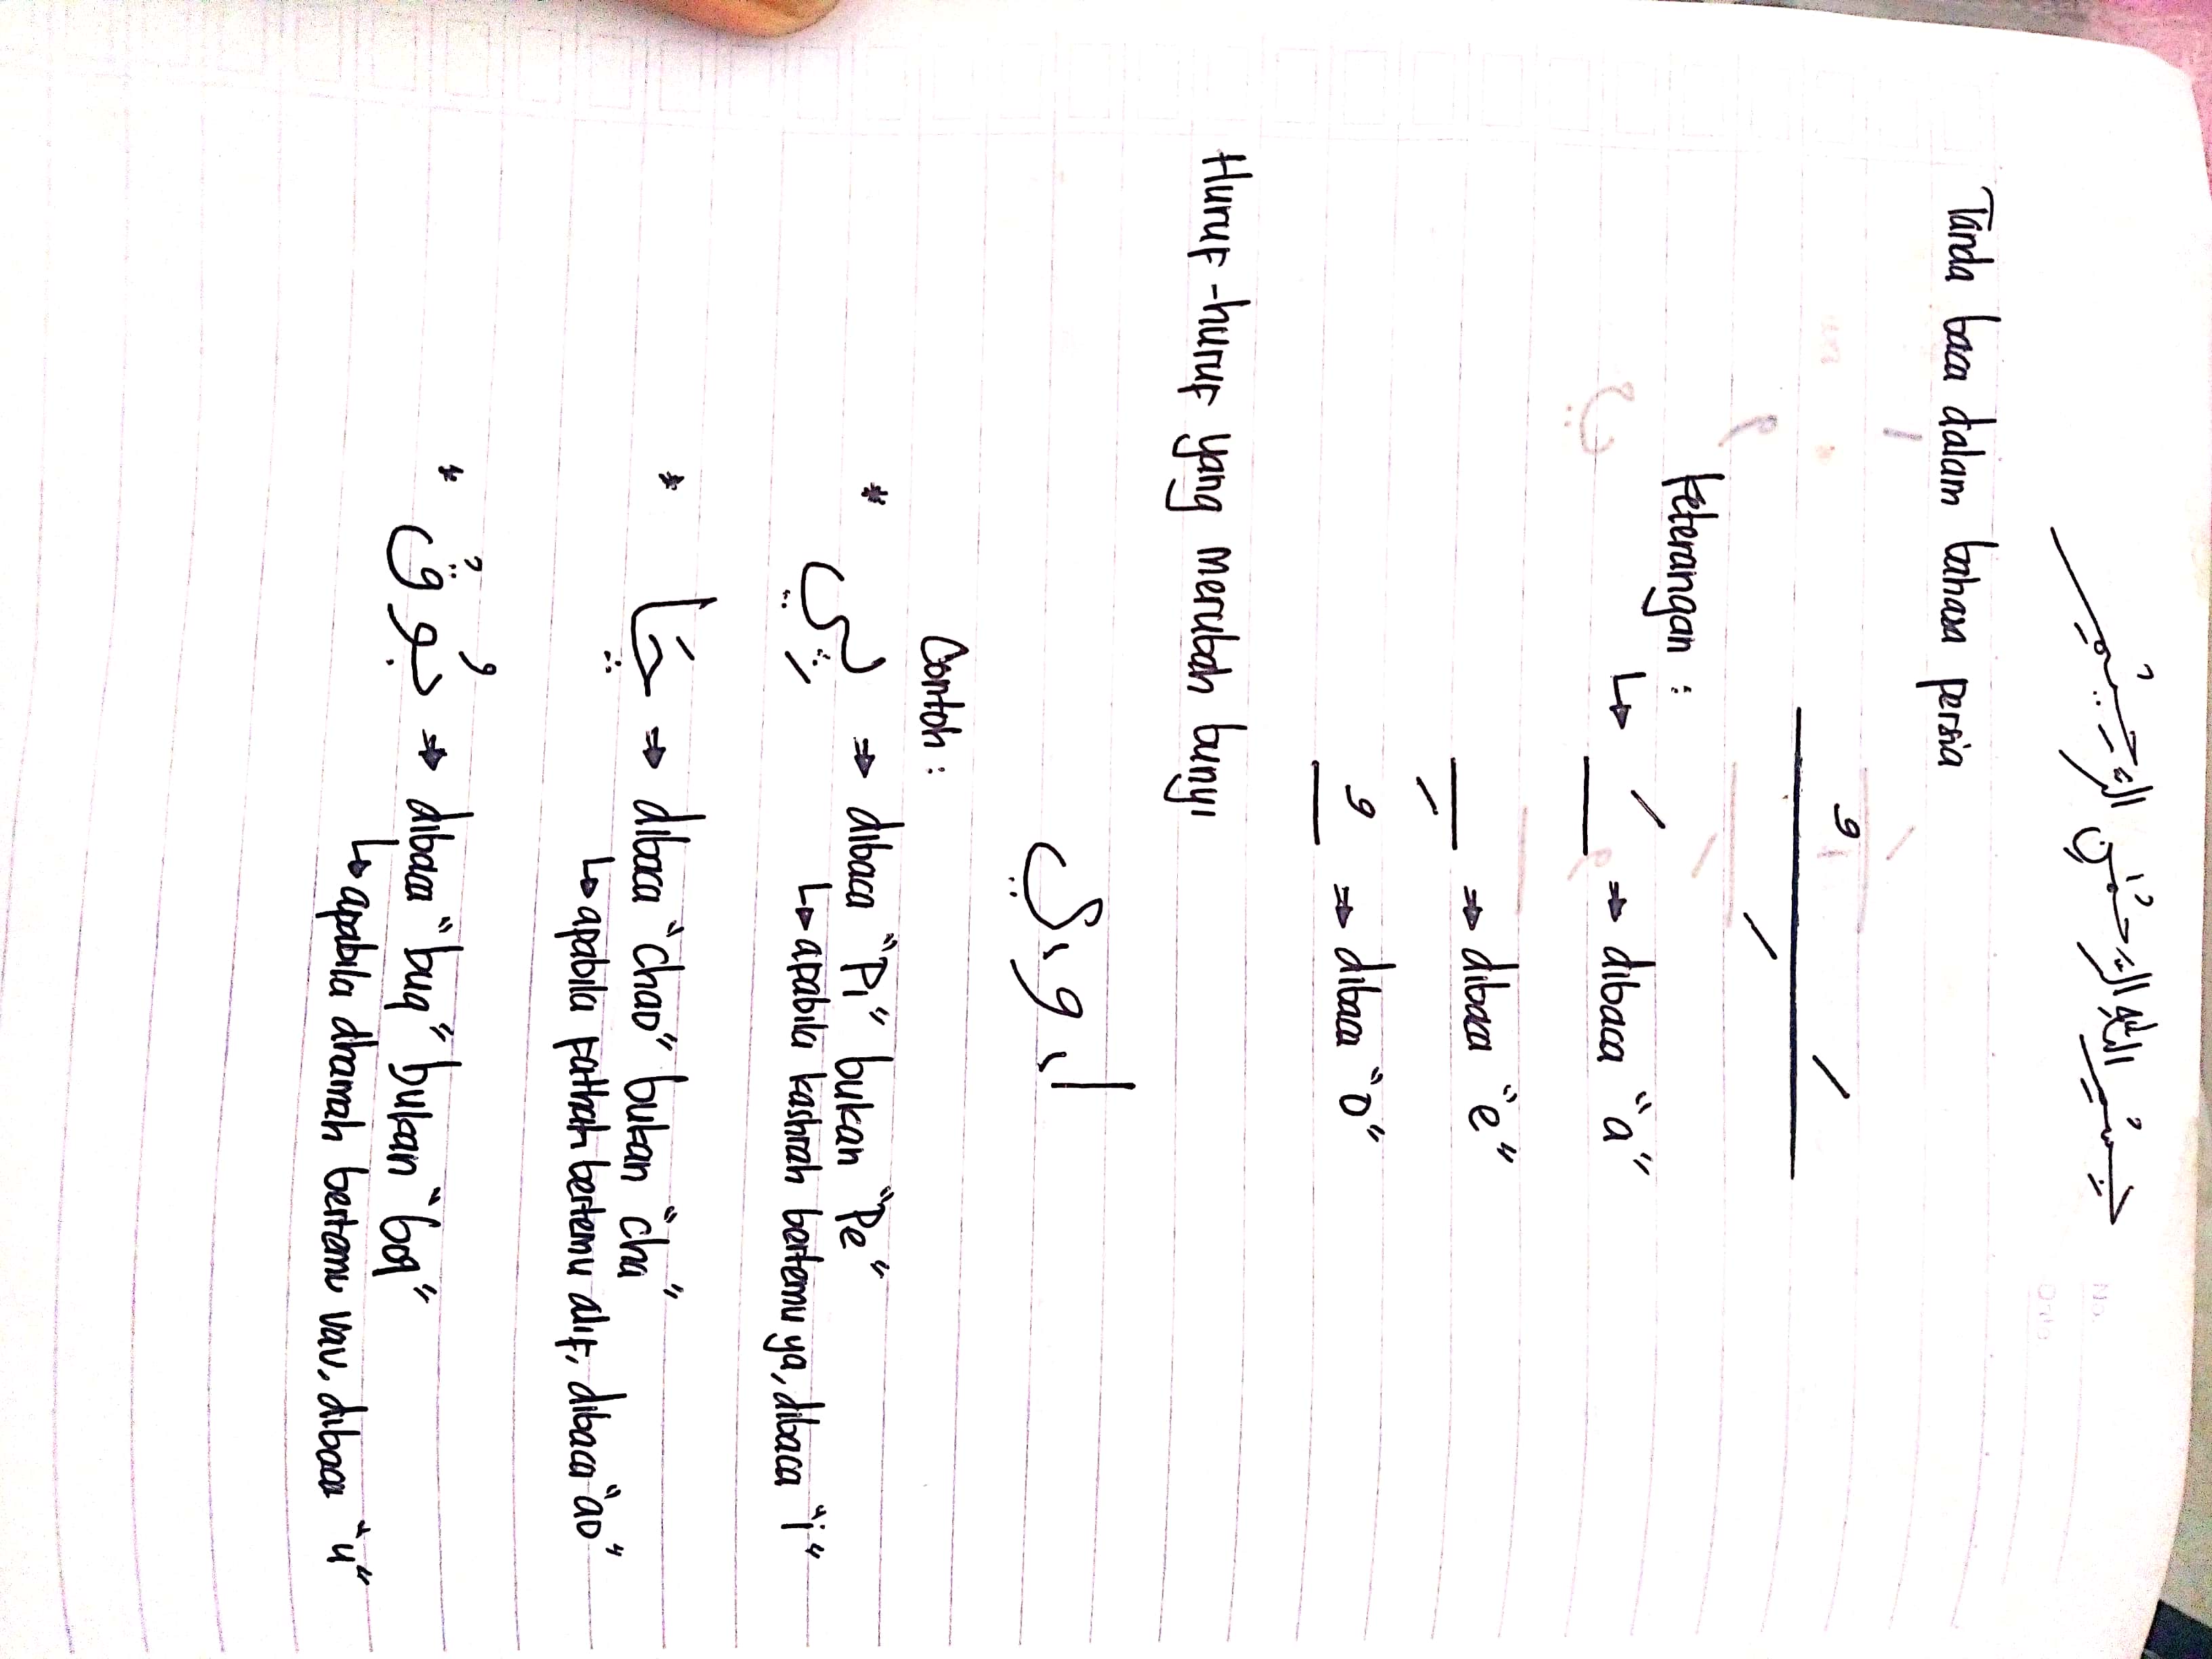 بِسْمِ اللهِ الرَّحْمٰنِ الرَّحِيْمِ
Tanda baca dalam bahasa persia
ُ ِ َ
Keterangan : ↳ َ ⇒ dibaca "a"
ِ ⇒ dibaca "e"
ُ ⇒ dibaca "o"
Huruf-huruf yang merubah bunyi
ي، و، ا
Contoh :
* پِي ⇒ dibaca "Pi" bukan "Pe"
↳ apabila kashrah bertemu ya, dibaca "i"
* چَا ⇒ dibaca "chao" bukan "cha"
↳ apabila fathah bertemu alif, dibaca "ao"
* بُوقْ ⇒ dibaca "buq" bukan "boq"
↳ apabila dhamah bertemu vav, dibaca "u"
No.
Date